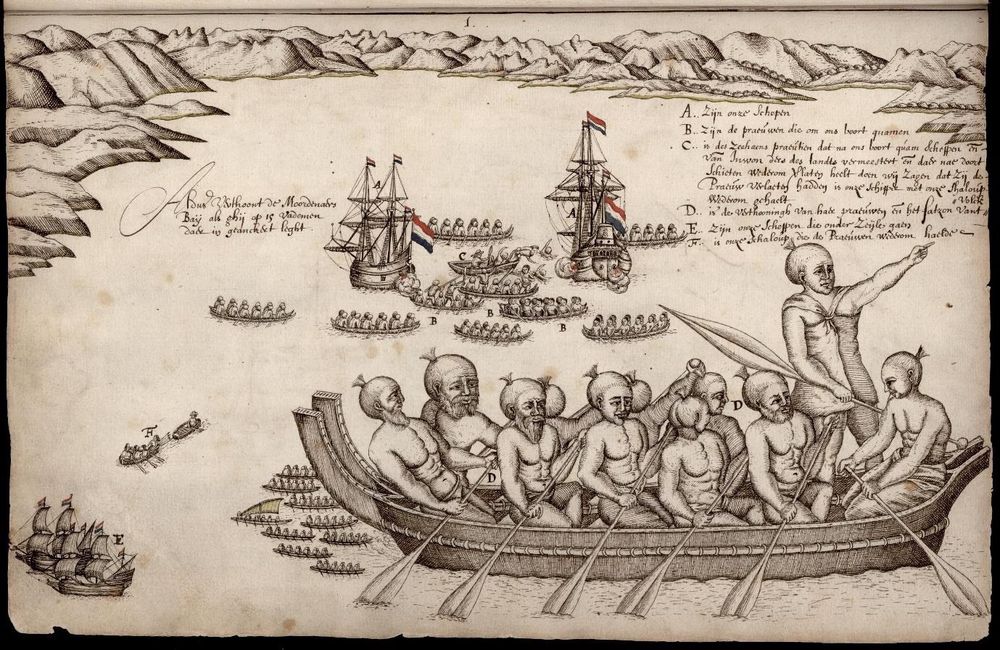 1.
A.. Zijn onze Schepen
B.. Zijn de praeuwen die om ons boort quamen
C.. is des Zeehaens praeutien dat na ons boort quam scheppen en
van Inwonders des landts vermeestert en daer nae door
Schieten wederom Verlaten heeft doen wij zagen dat Zij de
Praeuw Verlaeten hadden is onze Schipper met onze Shaloup
Wederom gehaelt
D.. is de Verthooningh van hare praeuwen en het fatzoen Vant Volck
E.. Zijn onze Scheppen die onder Zeijle gaen
F.. is onze Schaloup die de Praeuwen Wederom haelde
Aldus Verthoont de Moordenaers
Baij als ghij op 15 Vademen
daer in geanckert leght
A
A
C
B
B
B
D
D
F
E